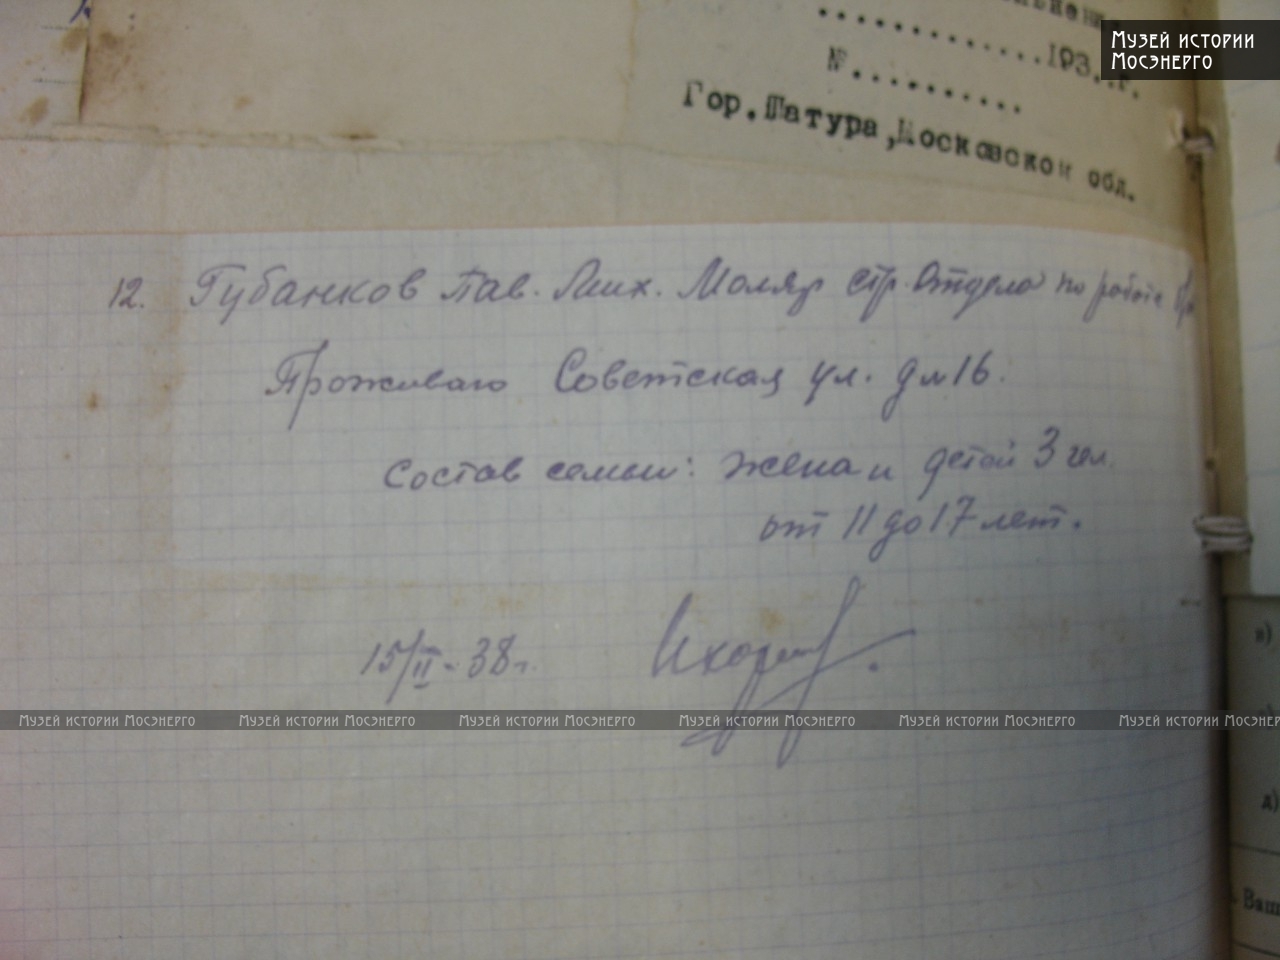 Музей истории
Мосэнерго
.............193..г.
№..........
Гор.Шатура,Московской обл.
12. Губанков Пав. Мих. Маляр стр. Отдела по работе
Проживаю Советская ул. д №16.
Состав семьи: жена и детей 3 чел.
от 11 до 17 лет.
15/II-38г.
Музей истории Мосэнерго Музей истории Мосэнерго Музей истории Мосэнерго Музей истории Мосэнерго Музей истории Мосэнерго Музей истории Мосэнерго
в)
д)